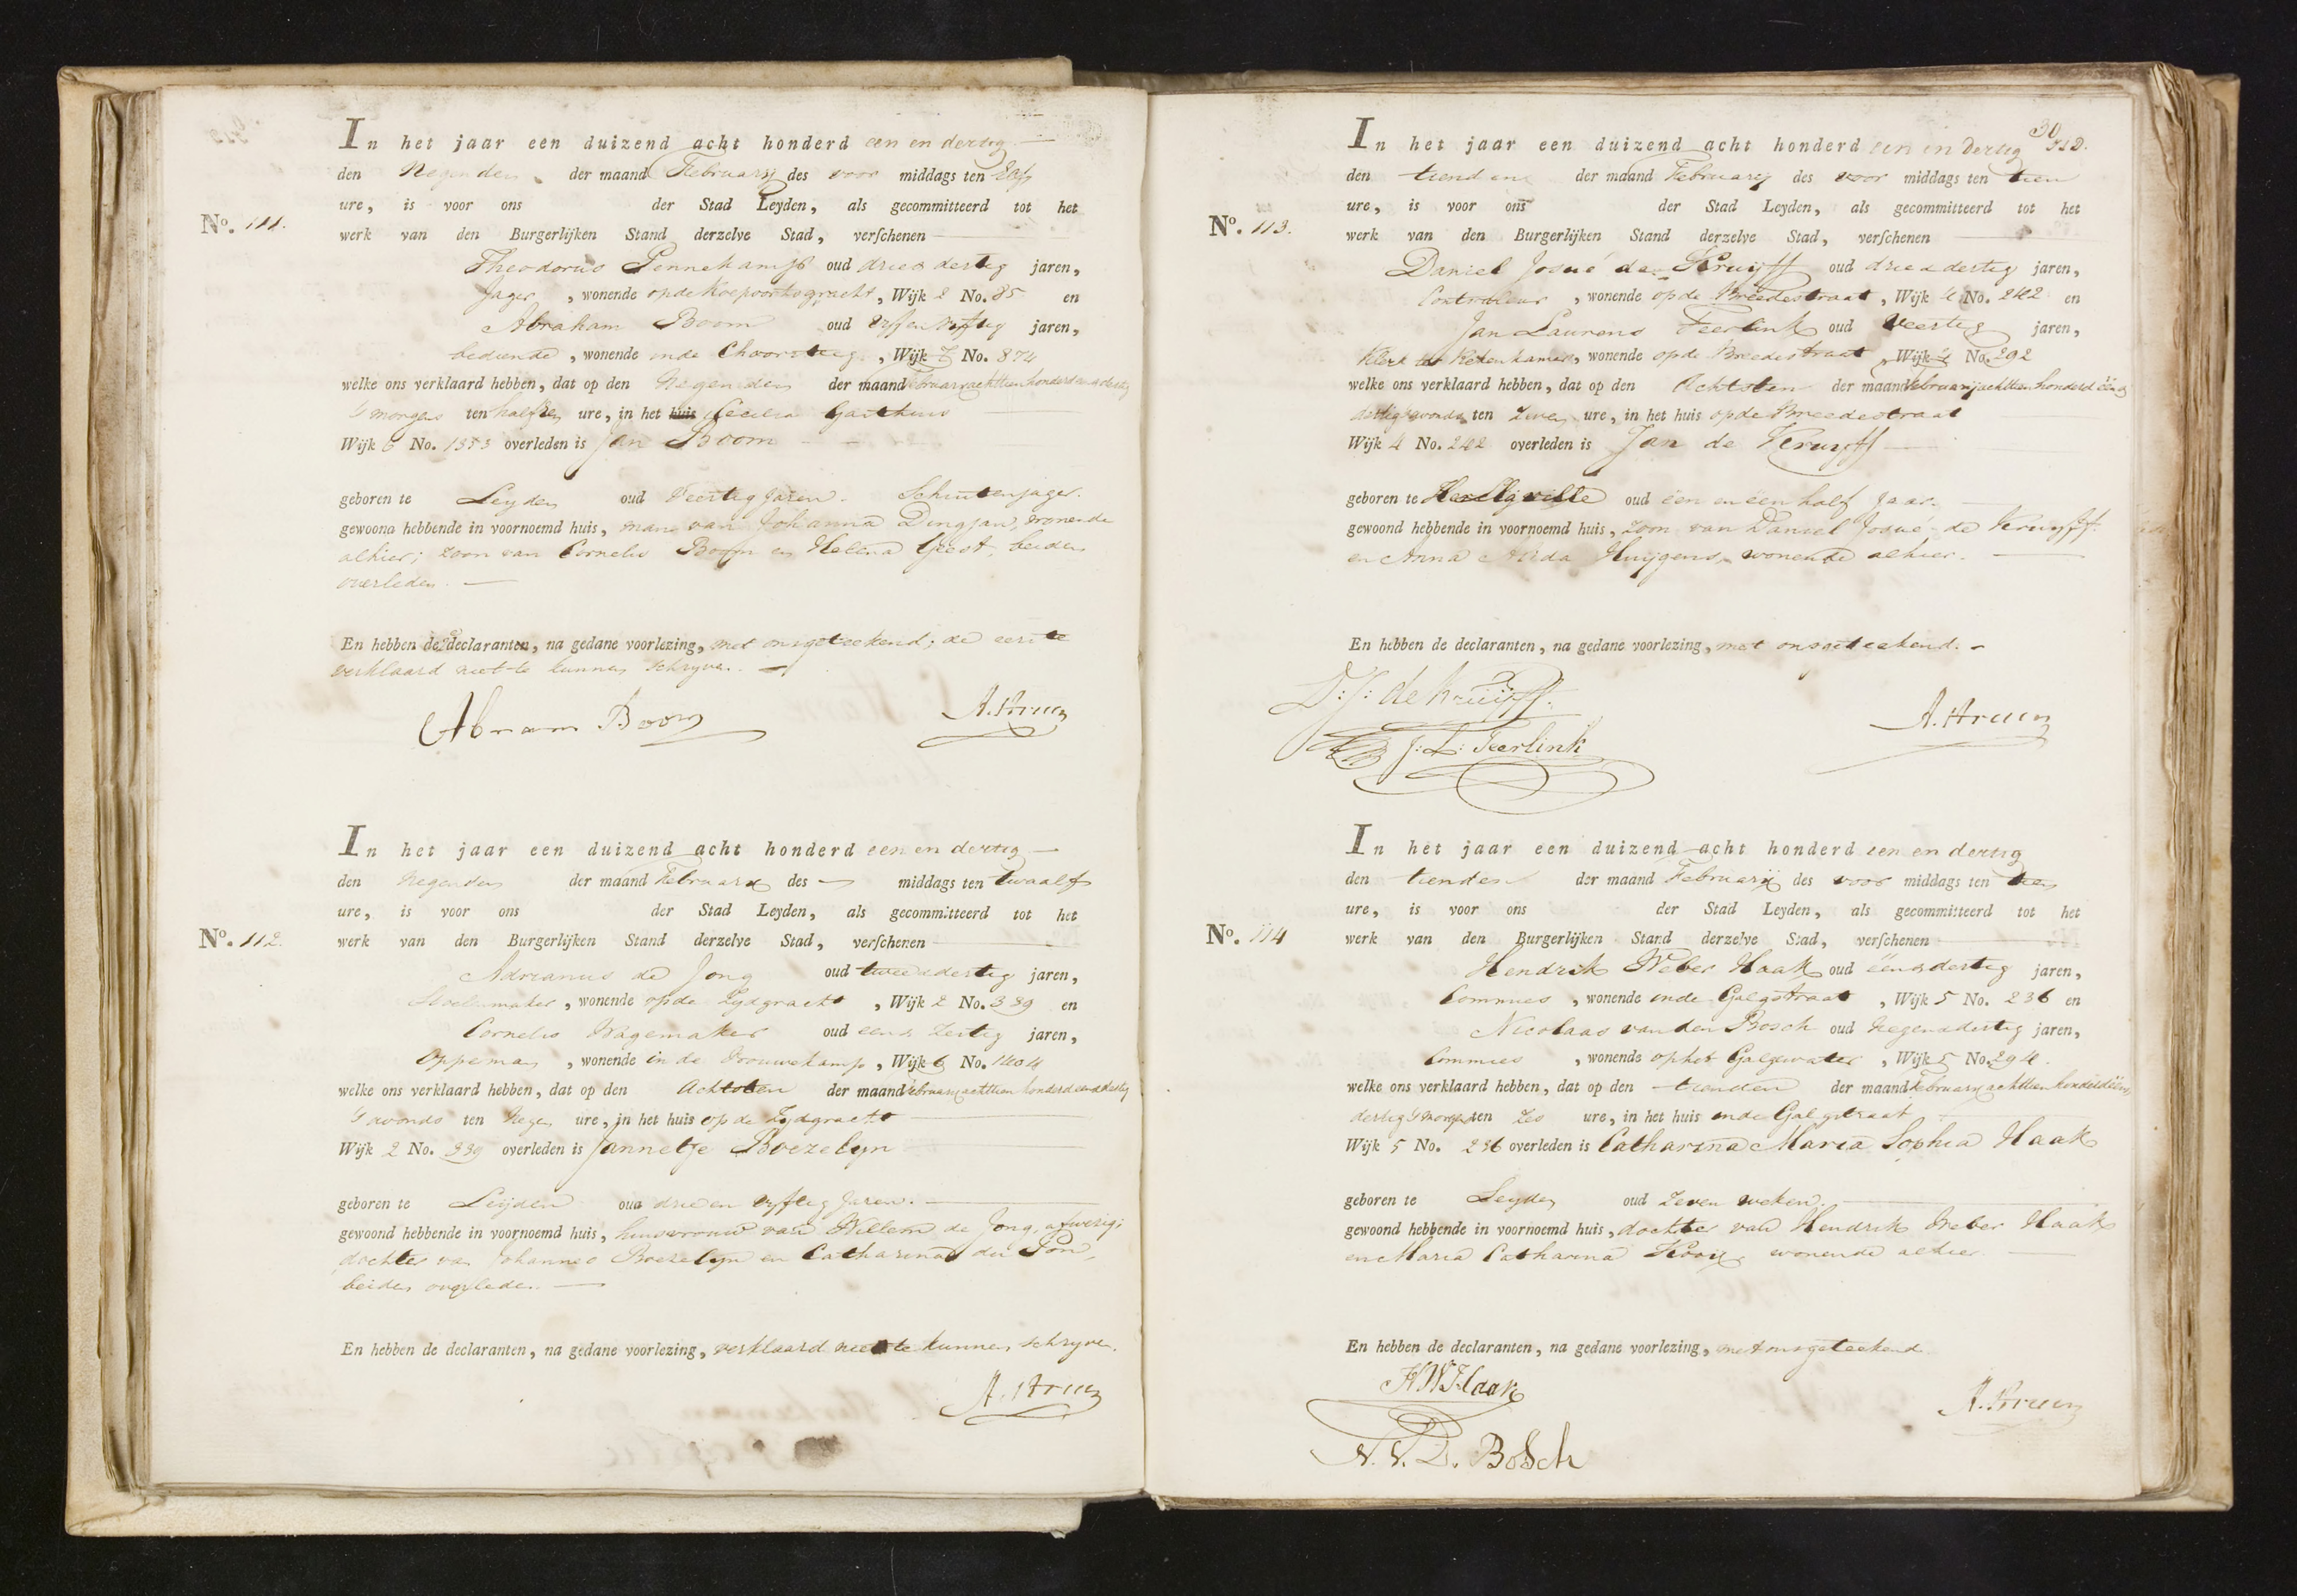 In het jaar een duizend acht honderd een en dertig
den Negenden der maand Februarij des voor middags ten Elf
ure, is voor ons der Stad Leyden, als gecommitteerd tot het
No. 111. werk van den Burgerlijken Stand derzelve Stad, verschenen
Theodorus Pennekamp oud drie & dertig jaren,
Jager, wonende op de Koepoortsgracht, Wijk 2 No. 85 en
Abraham Boom oud vyf en vyftig jaren,
bediende, wonende in de Choorsteeg, Wijk 7 No. 874
welke ons verklaard hebben, dat op den Negenden der maand Februarij achttien honderd een & dertig
's morgens ten half ure, in het huis Cecilia Gasthuis
Wijk 6 No. 1373 overleden is Jan Boom
geboren te Leyden oud Veertig Jaren. Schuitenjager.
gewoond hebbende in voornoemd huis, man van Johanna Dingjan, wonende
alhier; zoon van Cornelis Boom en Helena Geest, beiden
overleden.
En hebben de declaranten, na gedane voorlezing, met ons geteekend; de eerste
verklaard niet te kunnen schryven.
Abram Boom
In het jaar een duizend acht honderd een en dertig
den Negenden der maand Februarij des middags ten twaalf
ure, is voor ons der Stad Leyden, als gecommitteerd tot het
No. 112. werk van den Burgerlijken Stand derzelve Stad, verschenen
Adrianus de Jong oud twee & dertig jaren,
wonende op de Zydgracht, Wijk 2 No. 339 en
Cornelis Wagemaker oud een & zestig jaren,
Oppeman, wonende in de Vrouwekamp, Wijk 6 No. 1404
welke ons verklaard hebben, dat op den Achtsten der maand Februarij achttien honderd een & dertig
's avonds ten Negen ure, in het huis op de Zydgracht
Wijk 2 No. 339 overleden is Jannetje Boezelyn
geboren te Leijden oud drie en vyftig Jaren.
gewoond hebbende in voornoemd huis, huisvrouw van Willem de Jong, afwezig;
dochter van Johannes Boezelyn en Catharina du Pon,
beiden overleden.
En hebben de declaranten, na gedane voorlezing, verklaard niet te kunnen schryven.
30
In het jaar een duizend acht honderd een en dertig
den tienden der maand Februarij des voor middags ten tien
ure, is voor ons der Stad Leyden, als gecommitteerd tot het
No. 113. werk van den Burgerlijken Stand derzelve Stad, verschenen
Daniel Josué de Kruijff oud drie & dertig jaren,
Controleur, wonende op de Breedestraat, Wijk 4 No. 242 en
Jan Laurens Teerlink oud Veertig jaren,
Klerk ter Rekenkamer, wonende op de Breedestraat, Wijk 4 No. 292
welke ons verklaard hebben, dat op den Achtsten der maand Februarij achttien honderd één &
dertig 's avonds ten Zeven ure, in het huis op de Breedestraat
Wijk 4 No. 242 overleden is Jan de Kruyff
geboren te oud één en een half Jaar.
gewoond hebbende in voornoemd huis, zoon van Daniel Josué de Kruyff
en Anna Alida Huijgens, wonende alhier.
En hebben de declaranten, na gedane voorlezing, met ons geteekend.
D: J: de Kruijff.
J: L: Teerlink
In het jaar een duizend acht honderd een en dertig
den tienden der maand Februarij des voor middags ten tien
ure, is voor ons der Stad Leyden, als gecommitteerd tot het
No. 114 werk van den Burgerlijken Stand derzelve Stad, verschenen
Hendrik Weber Haak oud één & dertig jaren,
Commies, wonende in de Galgstraat, Wijk 5 No. 236 en
Nicolaas van den Bosch oud Negen & dertig jaren,
Commies, wonende op het Galgewater, Wijk 5 No. 294.
welke ons verklaard hebben, dat op den tienden der maand Februarij achttien honderd één &
dertig 's morgens ten Zes ure, in het huis in de Galgstraat
Wijk 5 No. 236 overleden is Catharina Maria Sophia Haak
geboren te Leyden oud Zeven weken.
gewoond hebbende in voornoemd huis, dochter van Hendrik Weber Haak
en Maria Catharina Kooij, wonende alhier
En hebben de declaranten, na gedane voorlezing, met ons geteekend
H W Haak
N. V. D. Bosch